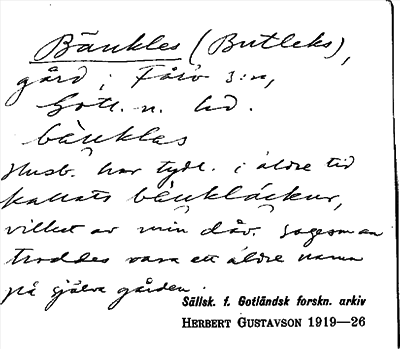 Bänkles (Butleks),
gård i Fårö s:n,
Gotl. n. hd.
bänkles
Husb. har tydl. i äldre tid
kallats bänkläckur,
vilket av min dåv. sagesman
troddes vara ett äldre namn
på själva gården.
Sällsk. f. Gotländsk forskn. arkiv
HERBERT GUSTAVSON 1919—26